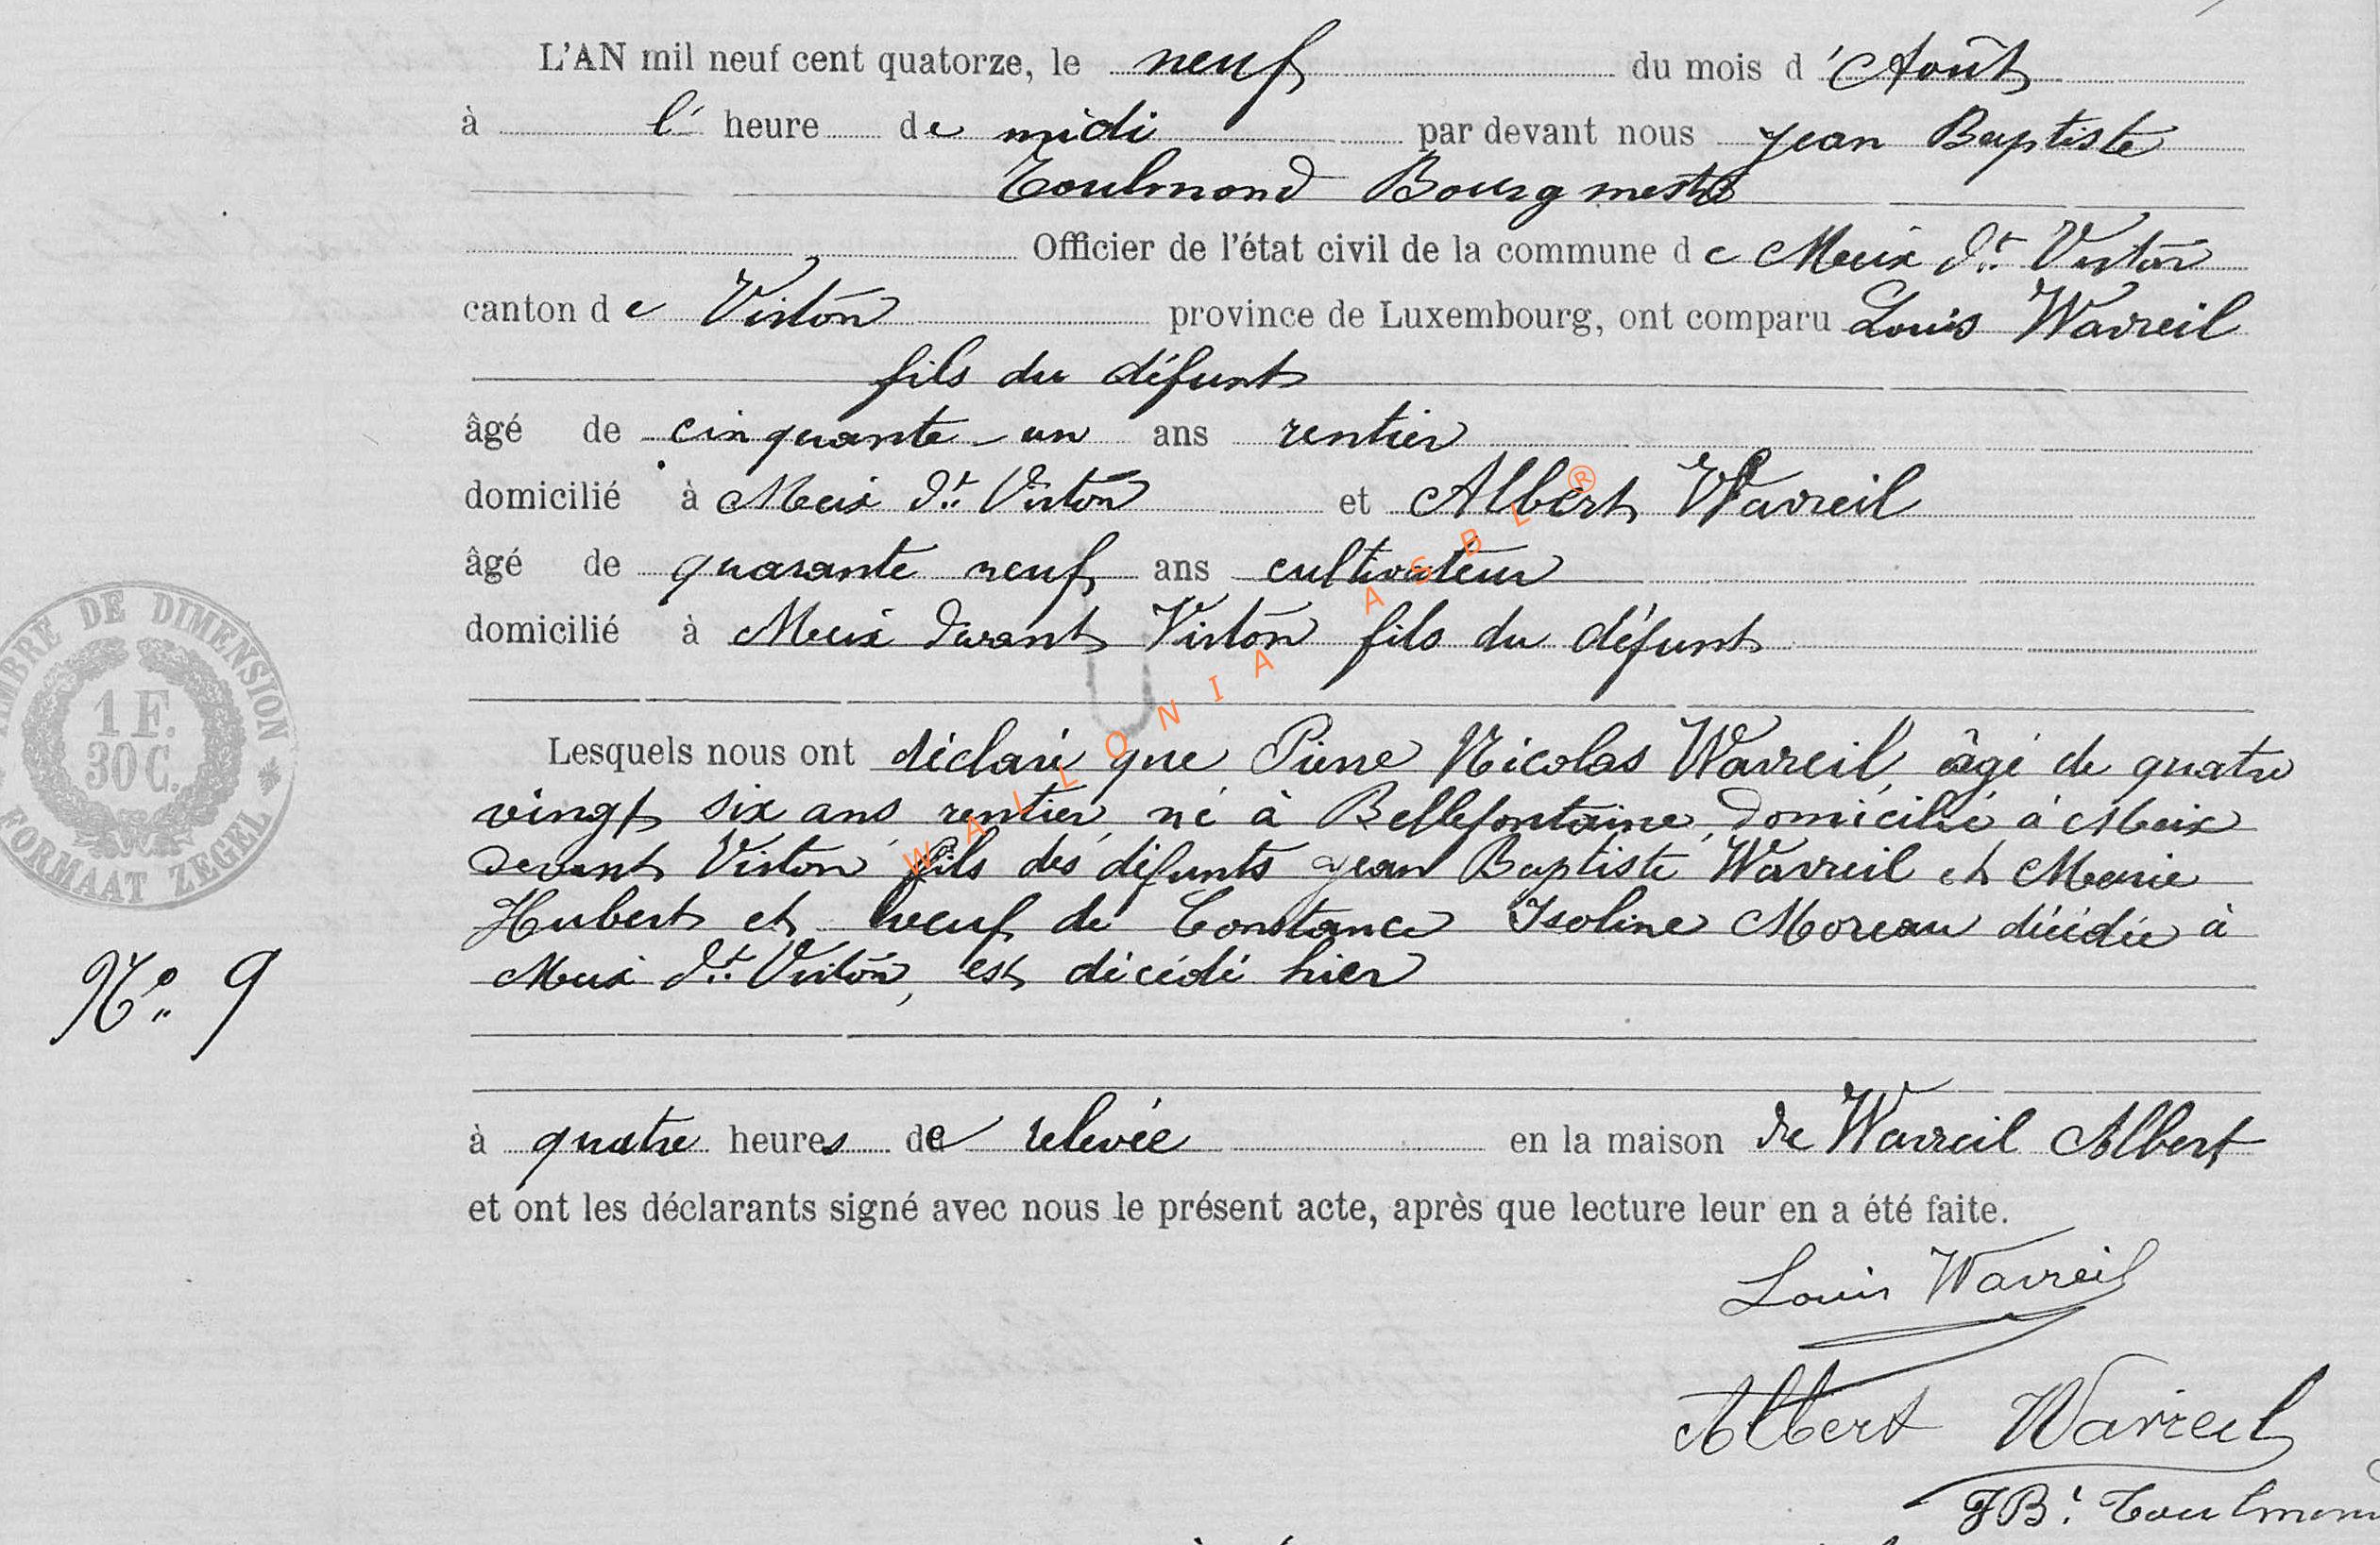 L'AN mil neuf cent quatorze, le neuf du mois d'Août
à l' heure de midi par devant nous Jean Baptiste
Toulmond Bourgmestre
Officier de l'état civil de la commune de Meix dt Virton
canton de Virton province de Luxembourg, ont comparu Louis Wavreil
fils du défunt
âgé de cinquante-un ans rentier
domicilié à Meix dt Virton et Albert Wavreil
âgé de quarante neuf ans cultivateur
domicilié à Meix devant Virton fils du défunt
Lesquels nous ont déclaré que Pierre Nicolas Wavreil, âgé de quatre
vingt six ans, rentier, né à Bellefontaine, domicilié à Meix
devant Virton, fils des défunts Jean Baptiste Wavreil et Marie
Hubert et veuf de Constance Isoline Moreau décédée à
Meix dt Virton, est décédé hier
à quatre heures de relevée en la maison de Wavreil Albert
et ont les déclarants signé avec nous le présent acte, après que lecture leur en a été faite.
Louis Wavreil
Albert Wavreil
JBt Toulmon
No 9
TIMBRE DE DIMENSION
1 F.
30 C.
FORMAAT ZEGEL
WALLONIA ASBL ®